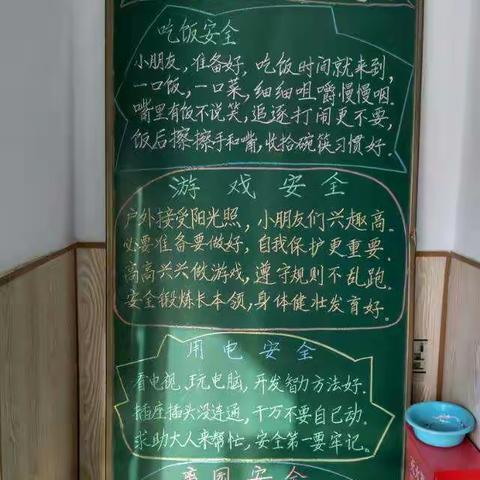 吃饭安全
小朋友，准备好，吃饭时间就来到，
一口饭，一口菜，细细咀嚼慢慢咽．
嘴里有饭不说笑，追逐打闹更不要，
饭后擦擦手和嘴，收拾碗筷习惯好．
游戏安全
户外接受阳光照，小朋友们兴趣高．
必要准备要做好，自我保护更重要．
高高兴兴做游戏，遵守规则不乱跑．
安全锻炼长本领，身体健壮发育好．
用电安全
看电视、玩电脑，开发智力方法好．
插座插头没连通，千万不要自己动．
求助大人来帮忙，安全第一要牢记．
离园安全